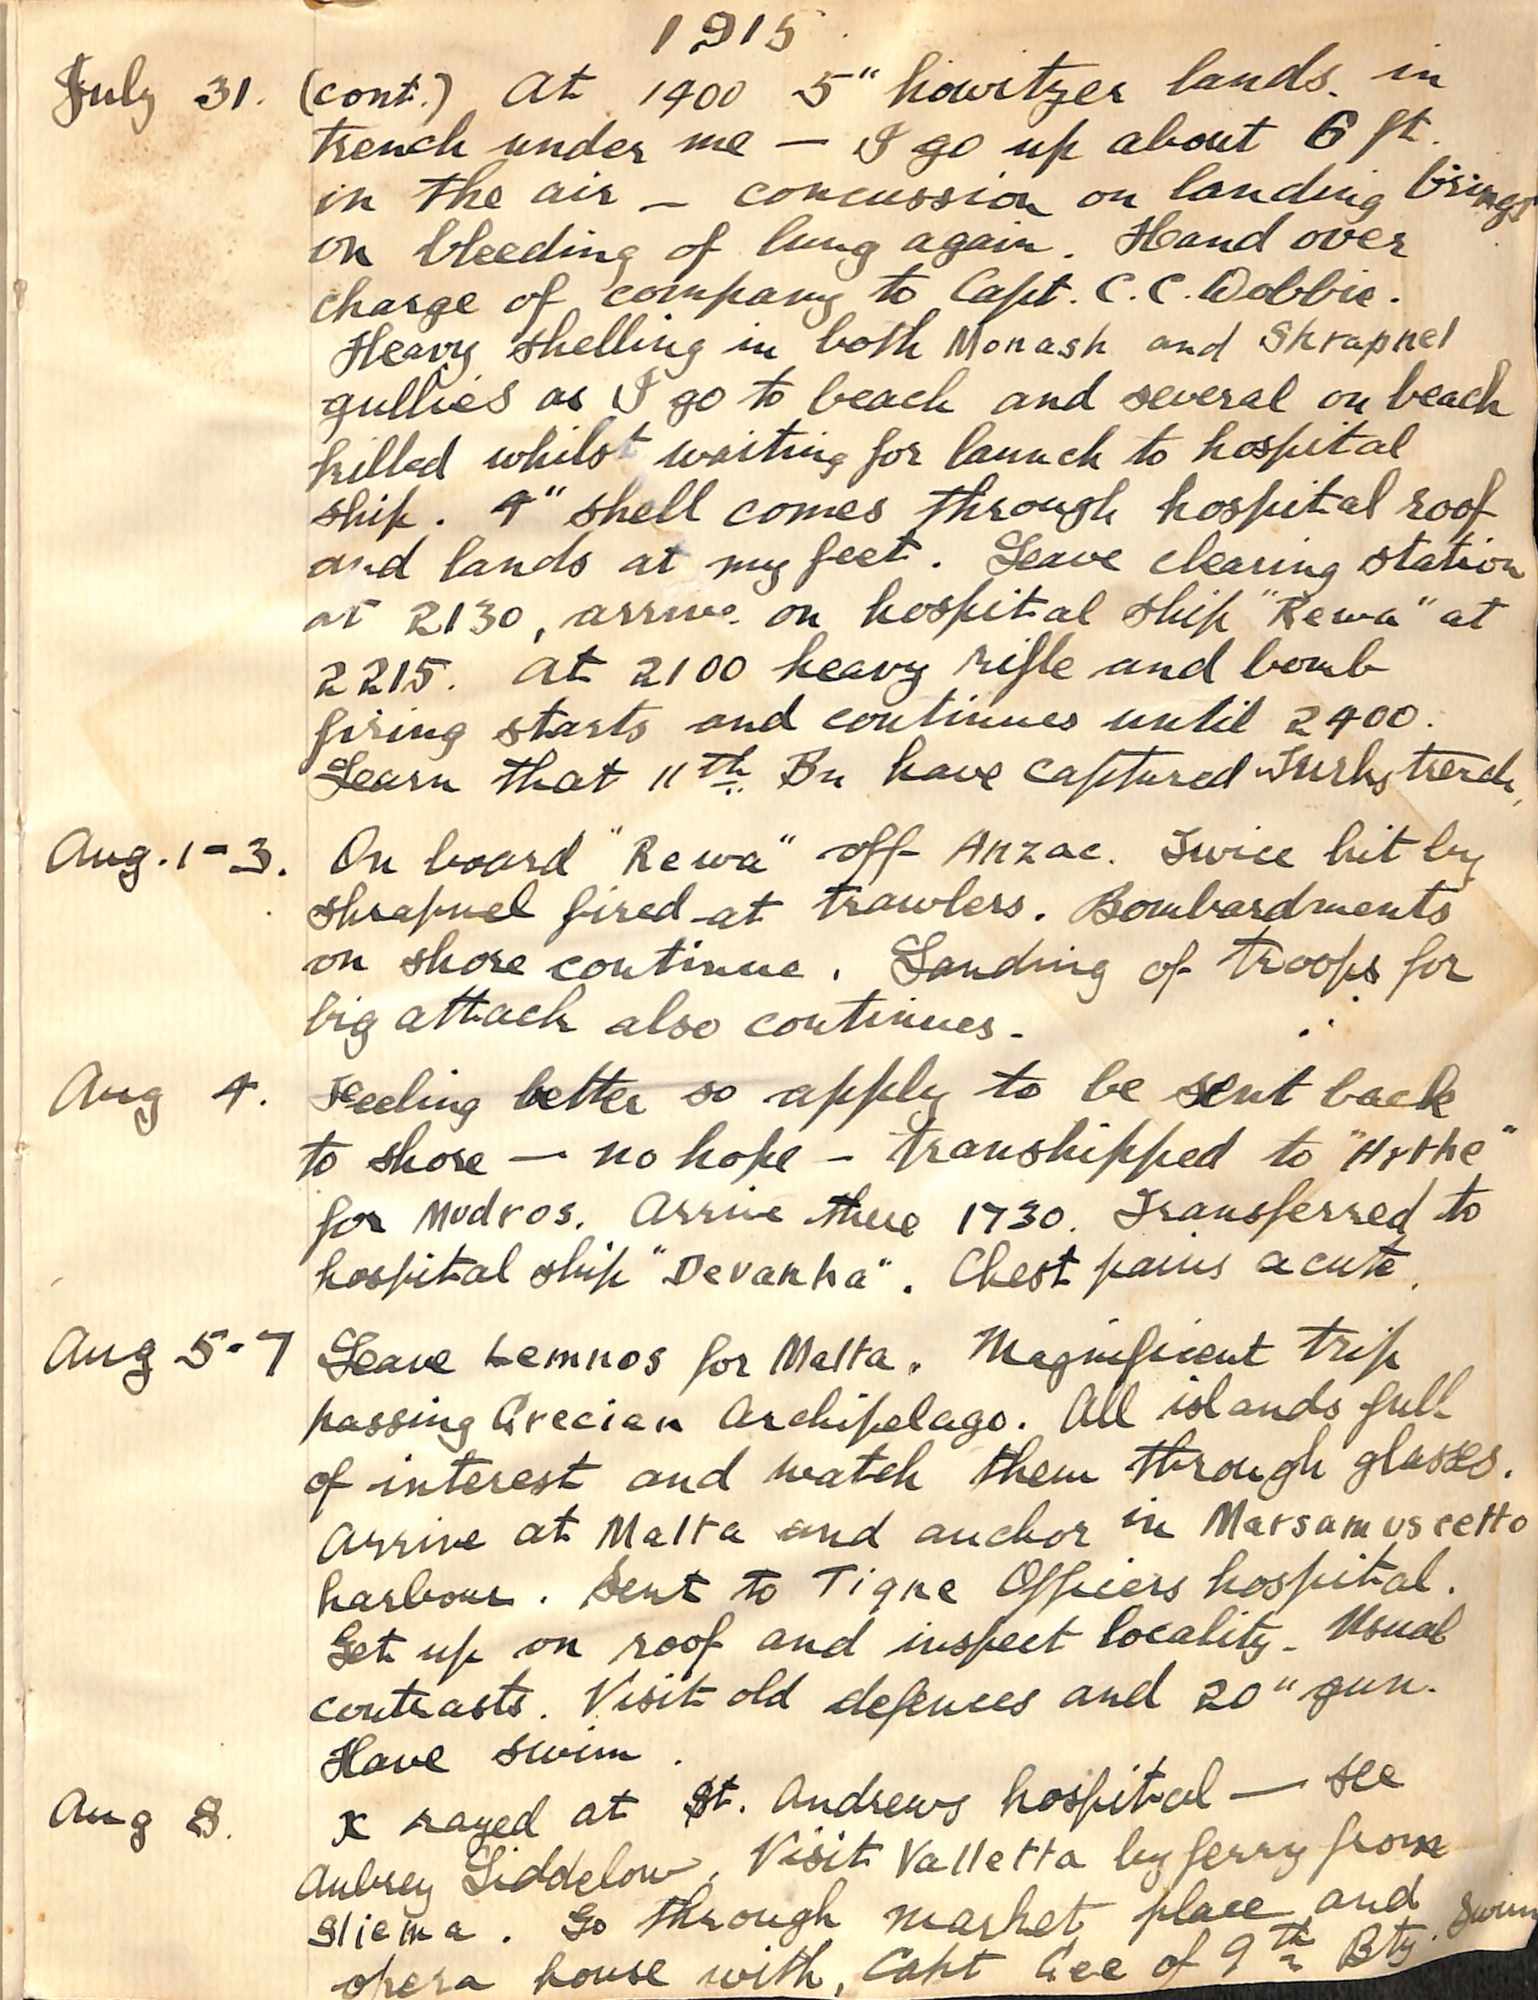 1915
July 31. (cont.) At 1400 5" howitzer lands in
trench under me — I go up about 6 ft.
in the air — concussion on landing brings
on bleeding of lung again. Hand over
charge of company to Capt. C. C. Dobbie.
Heavy shelling in both Monash and Shrapnel
gullies as I go to beach and several on beach
killed whilst waiting for launch to hospital
ship. 4" shell comes through hospital roof
and lands at my feet. Leave clearing station
at 2130, arrive on hospital ship "Rewa" at
2215. At 2100 heavy rifle and bomb
firing starts and continues until 2400.
Learn that 11th Bn have captured Turks trench.
Aug. 1-3. On board "Rewa" off Anzac. Twice hit by
shrapnel fired at trawlers. Bombardments
on shore continue. Landing of troops for
big attack also continues.
Aug 4. Feeling better so apply to be sent back
to shore — no hope — transhipped to "Hythe"
for Mudros. Arrive there 1730. Transferred to
hospital ship "Devanha". Chest pains acute.
Aug 5-7 Leave Lemnos for Malta. Magnificent trip
passing Grecian Archipelago. All islands full
of interest and watch them through glasses.
Arrive at Malta and anchor in Marsamuscetto
harbour. Sent to Tigne Officers hospital.
Get up on roof and inspect locality. Usual
contrasts. Visit old defences and 20" gun.
Have swim.
Aug 8. X rayed at St. Andrews hospital — see
Aubrey Liddelow. Visit Valletta by ferry from
Sliema. Go through market place and
opera house with, Capt Gee of 9th Bty. Swim